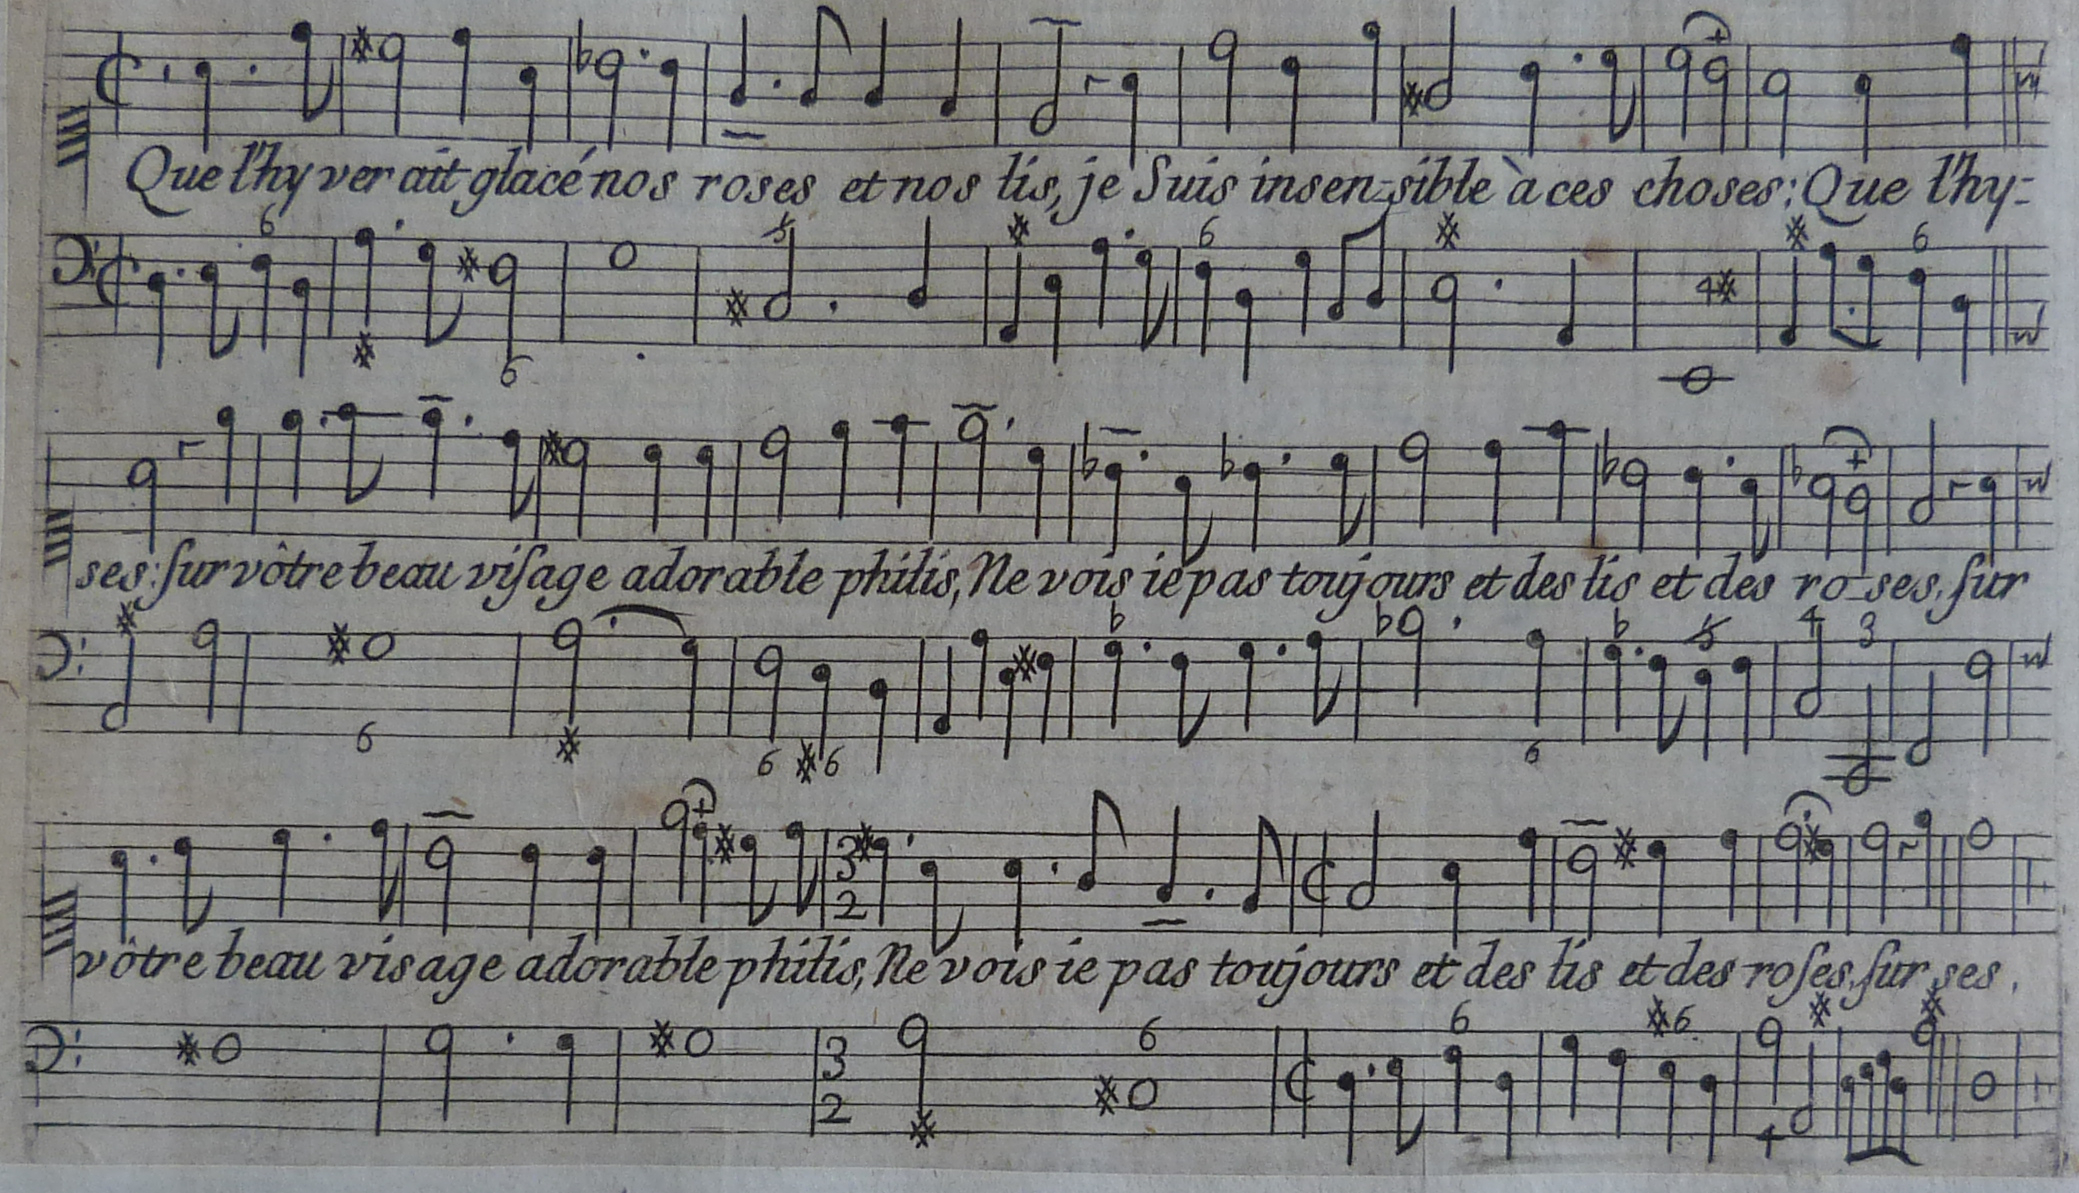 Que l'hyver ait glacé nos roses et nos lis, je Suis insen-sible à ces choses: Que l'hy-
ses: sur vôtre beau visage adorable philis, Ne vois ie pas toujours et des lis et des ro-ses. sur
vôtre beau visage adorable philis, Ne vois ie pas toujours et des lis et des roses. sur ses.